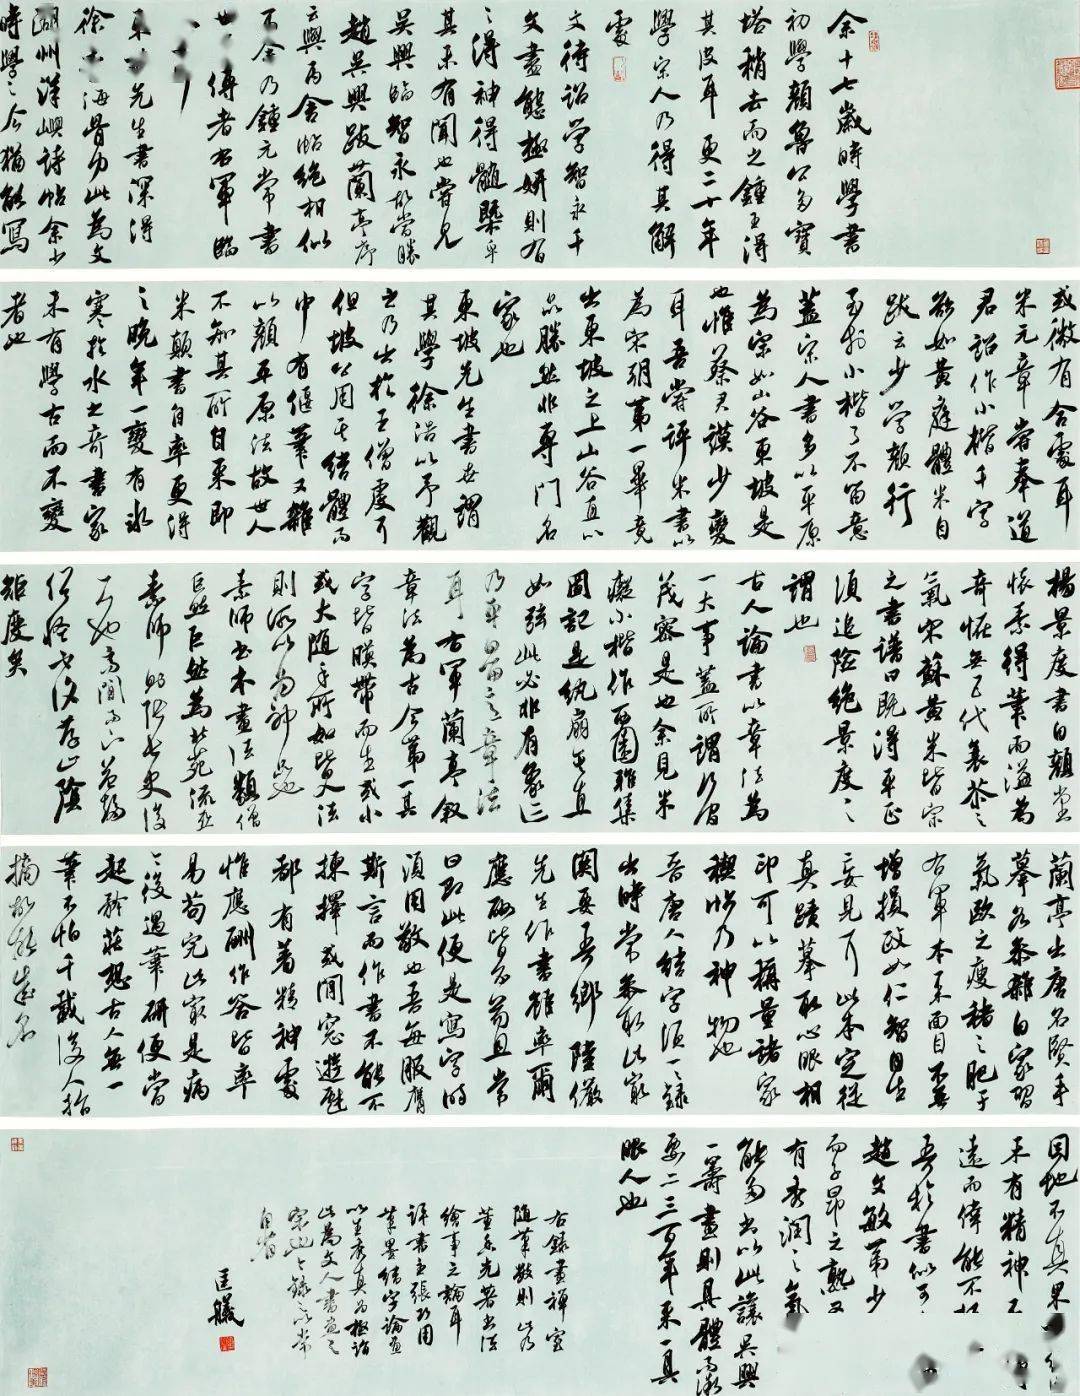 余十七歲時學書
初學顏魯公多寶
塔稍去而之鍾王得
其皮耳更二十年
學宋人乃得其解
處
文待詔學智永千
文盡態極妍則有
之得神得髓槩乎
其未有聞也嘗見
吳興臨智永故當勝
趙吳興跋蘭亭序
云與丙舍帖絕相似
不今乃鍾元常書
世傳者右軍臨
東坡先生書深得
徐季海骨力此為文
湖州洋嶼詩帖余少
時學之今猶能寫
或微有合處耳
米元章嘗奉道
君詔作小楷千字
欲如黃庭體米自
跋云少學顏行
至於小楷了不留意
蓋宋人書多以平原
為宗如山谷東坡是
也惟蔡君謨少變
耳吾嘗評米書以
為宋朝第一畢竟
出東坡之上山谷直以
品勝然非專門名
家也
東坡先生書世謂
其學徐浩以予觀
之乃出於王僧虔耳
但坡公用其結體而
中有偃筆又雜
以顏平原法故世人
不知其所自來即
米顛書自率更得
之晚年一變有冰
寒於水之奇書家
未有學古而不變
者也
楊景度書自顏尚書
懷素得筆而溢為
奇怪無五代衰苶之
氣宋蘇黃米皆宗
之書譜曰既得平正
須追險絕景度之
謂也
古人論書以章法為
一大事蓋所謂行間
茂密是也余見米
癡小楷作西園雅集
圖記是紈扇其直
如弦此必非有象正
乃平日留意章法
耳右軍蘭亭敘
章法為古今第一其
字皆映帶而生或小
或大隨手所如皆入法
則所以為神品也
素師書本畫法類僧
巨然巨然為北苑流亞
素師則張長史後
一人也高閒而下益趨
俗怪不復存山陰
矩度矣
蘭亭出唐名賢手
摹各參雜自家習
氣歐之瘦褚之肥于
右軍本來面目不無
增損政如仁智自生
妄見耳此本定從
真蹟摹取心眼相
印可以稱量諸家
禊帖乃神物也
晉唐人結字須一一錄
出時常參取此最
關要吾鄉陸儼
先生作書雖率爾
應酬皆不苟且常
曰即此便是寫字時
須用敬也吾每服膺
斯言而作書不能不
揀擇或閒窗遊戲
都有著精神處
惟應酬作答皆率
易苟完此最是病
今後遇筆研便當
起矜莊想古人無一
筆不怕千載後人指
摘故能成名
因地不真果
未有精神不
遠而偉能不
吾於書似可
趙文敏第少
而子昂之熟又
有秀潤之氣
能多書以此讓吳興
一籌畫則具體而微
要亦三百年來一具
眼人也
右錄畫禪室
隨筆數則此乃
董香光著書法
繪事之論耳
評書主張巧用
筆墨結字論畫
以生秀真為極詣
此為文人書畫之
宗也今錄之以常
自省
匡儀